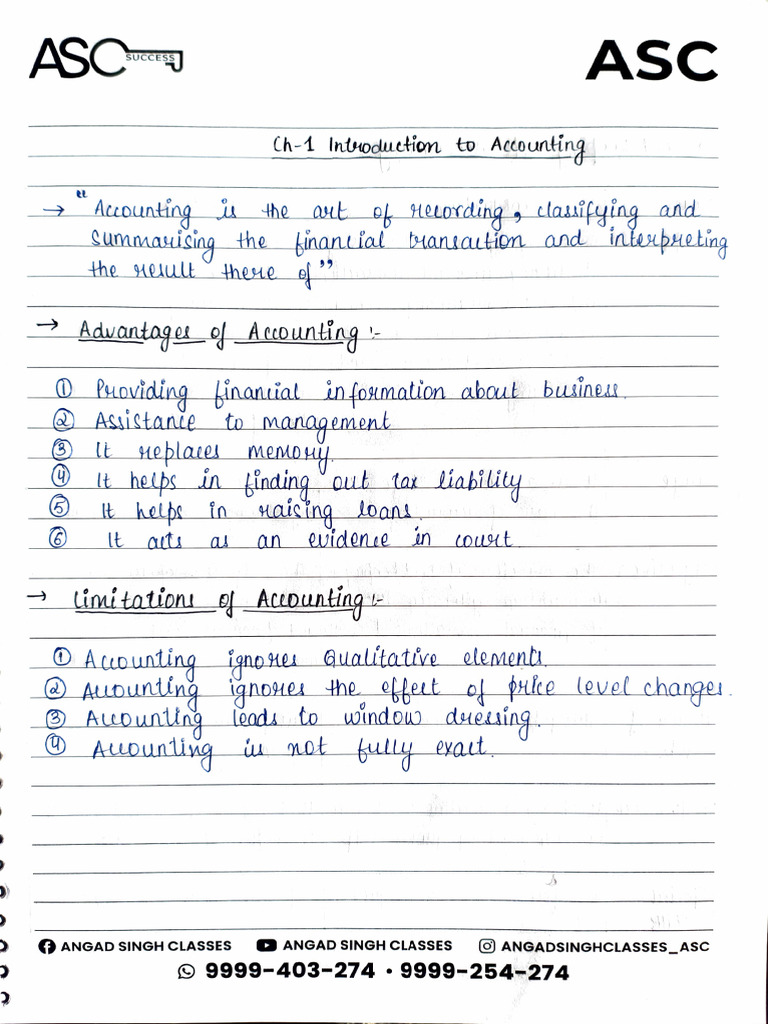 ASC SUCCESS
ASC
Ch-1 Introduction to Accounting
→ "Accounting is the art of recording, classifying and
summarising the financial transaction and interpreting
the result there of"
→ Advantages of Accounting :-
① Providing financial information about business.
② Assistance to management
③ It replaces memory.
④ It helps in finding out tax liability
⑤ It helps in raising loans.
⑥ It acts as an evidence in court
→ Limitations of Accounting :-
① Accounting ignores Qualitative elements.
② Accounting ignores the effect of price level changes.
③ Accounting leads to window dressing.
④ Accounting is not fully exact.
ANGAD SINGH CLASSES ANGAD SINGH CLASSES ANGADSINGHCLASSES_ASC
9999-403-274 • 9999-254-274